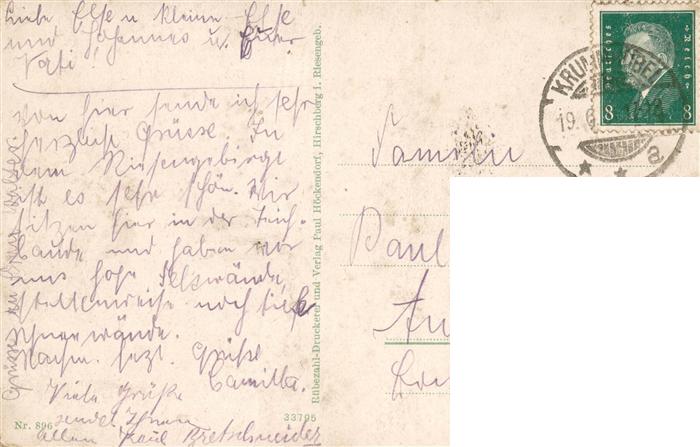 Liebe Else u. kleine Else
und Johannes u.
Vati!
von hier sende ich sehr
herzlich Grüsse. In
dem Riesengebirge
ist es sehr schön. Wir
sitzen hier in der Teich-
baude und haben vor
uns hohe Felswände,
stellenweise noch tiefe
Schneewände.
Nachm. herzl. Grüße
Camilla.
Viele Grüße
sendet Ihnen
allen Paul Bretschneider
Nr. 896
33705
Rübezahl-Druckerei und Verlag Paul Höckendorf, Hirschberg i. Riesengeb.
Familie
Paul
Deutsches Reich
8 8
KRUMMHÜBEL
19.6
a